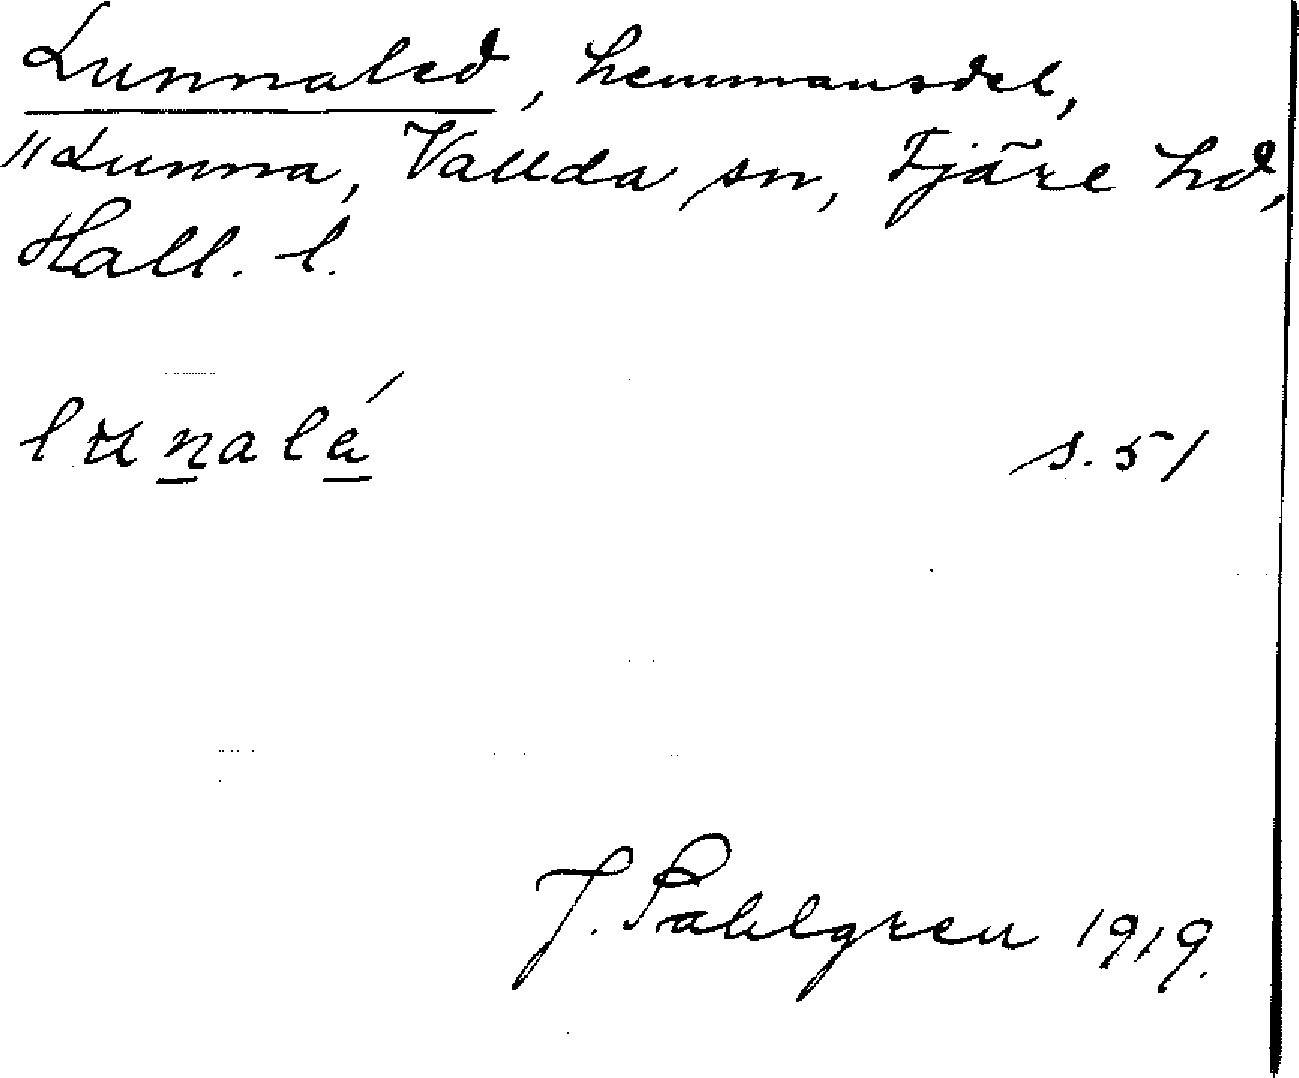 Lunnaled, hemmansdel,
"Lunna, Vallda sn, Fjäre hd,
Hall. l.
lunalé
s. 51
J. Pahlgren 1919.